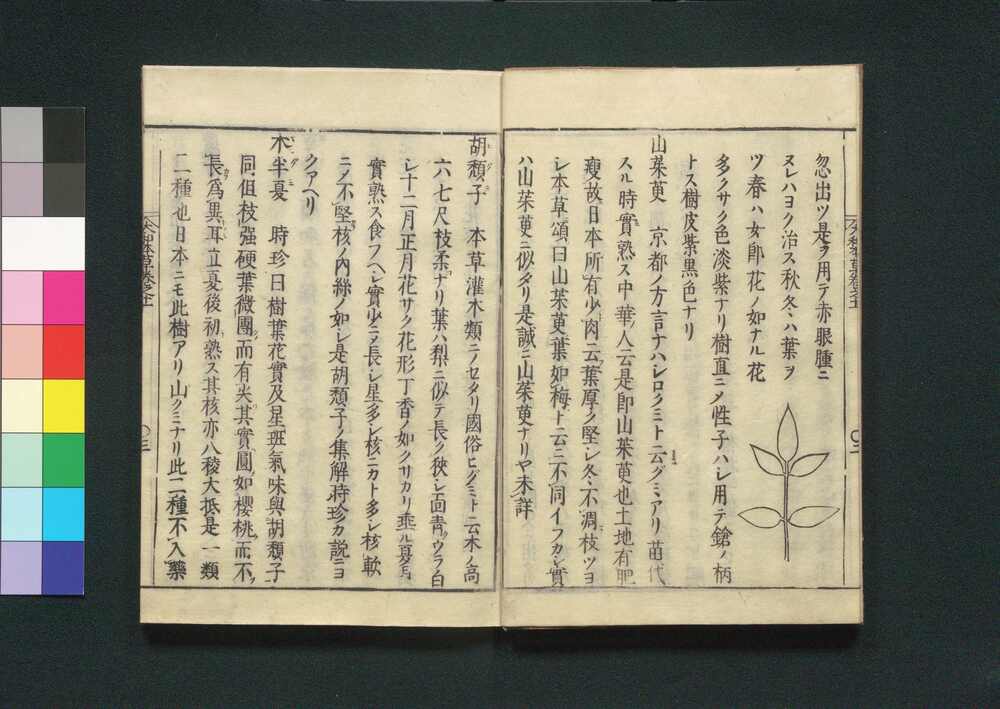 忽出ツ是ヲ用テ赤眼腫ニ
ヌレハヨク治ス秋冬ハ葉ヲ
ツ春ハ女郎花ノ如ナル花
多クサク色淡紫ナリ樹直ニメ性子ハシ用テ鎗ノ柄
トス樹皮紫黒色ナリ
山茱萸 京都ノ方言ナハシロクミト云グミアリ苗代
スル時實熟ス中華ノ人云是即山茱萸也土地有肥
瘦故日本所有少肉云葉厚ク堅シ冬不凋枝ツヨ
シ本草頌曰山茱萸葉如梅ト云ニ不同イフカシ實
ハ山茱萸ニ似タリ是誠ニ山茱萸ナリヤ未詳
胡頽子 本草灌木類ニノセタリ國俗ヒグミト云木ノ高
六七尺枝柔ナリ葉ハ梨ニ似テ長ク狹シ面青ウラ白
シ十二月正月花サク花形丁香ノ如クサカリ垂ル夏
實熟ス食フヘシ實少ニメ長シ星多シ核ニカト多シ核軟
ニメ不堅核ノ内絲ノ如シ是胡頽子ノ集解時珍カ説ニヨ
クアヘリ
木半夏 時珍曰樹葉花實及星斑氣味與胡頽子
同但枝強硬葉微團而有尖其實圓如櫻桃而不
長爲異耳立夏後初熟ス其核亦八稜大抵是一類
二種也日本ニモ此樹アリ山クミナリ此二種不入藥